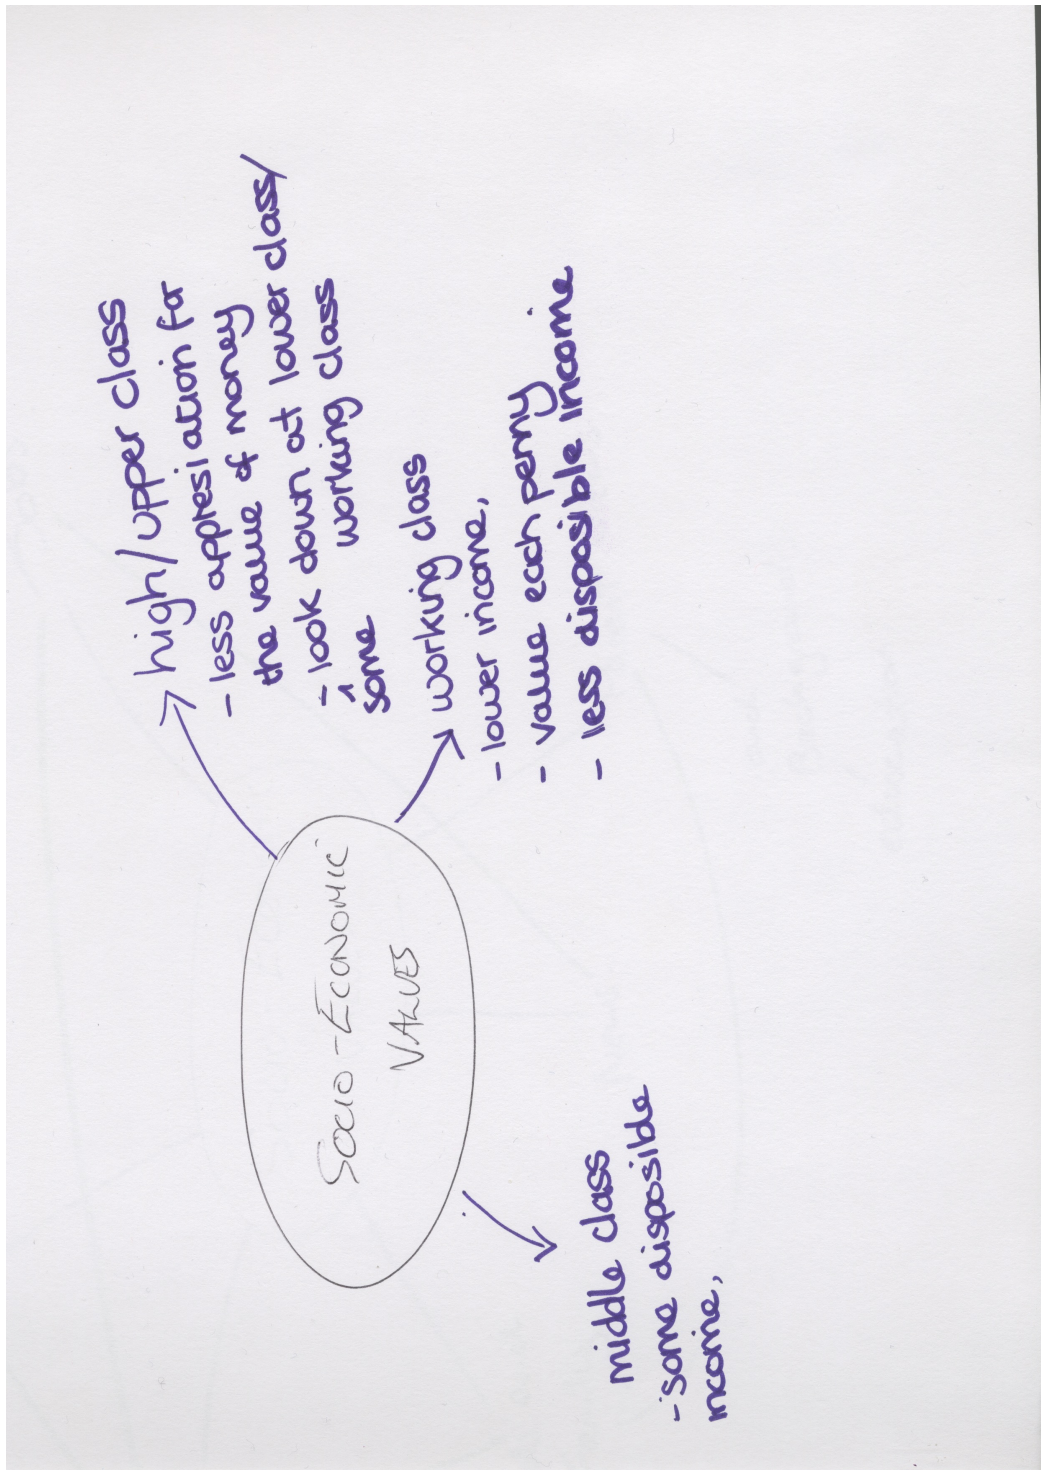 SOCIO-ECONOMIC
VALUES
high/upper class
- less appresiation for
the value of money
- look down at lower class/
^ working class
some
working class
- lower income,
- value each penny
- less disposible income
middle class
- some disposible
income,